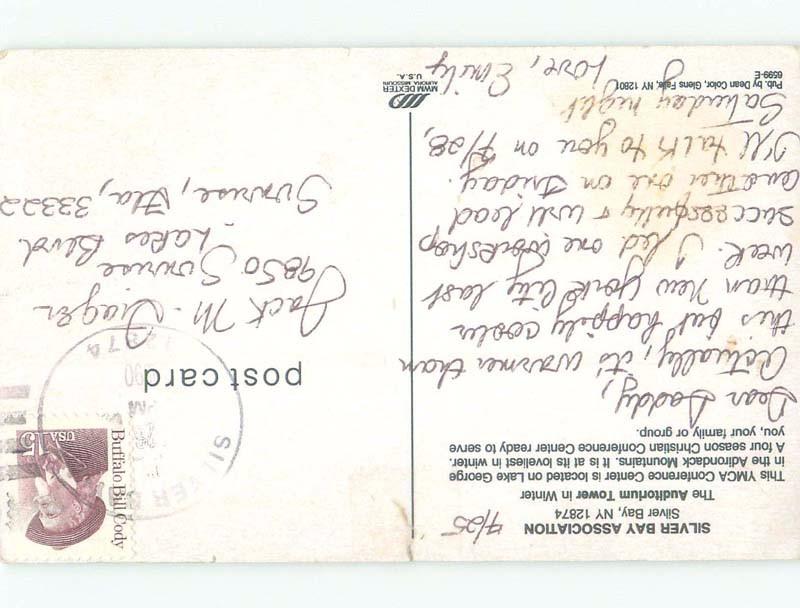 SILVER BAY ASSOCIATION
Silver Bay, NY 12874
7/25
The Auditorium Tower in Winter
This YMCA Conference Center is located on Lake George
in the Adirondack Mountains. It is at its loveliest in winter.
A four season Christian Conference Center ready to serve
you, your family or group.
Dear Daddy,
Actually, it's warmer than
this but happily cooler
than New York City last
week. I led one workshop
successfully & will lead
another one on Friday.
I'll talk to you on 7/28,
Saturday night.
Love, Emily
Pub. by Dean Color, Glens Falls, NY 12801
6599-E
MWM DEXTER
AURORA MISSOURI
U.S.A.
Buffalo Bill Cody
USA 15
SILVER
12874
PM
post card
Jack M.
9850 Sunrise
Lakes Blvd.
Sunrise, Fla, 33322